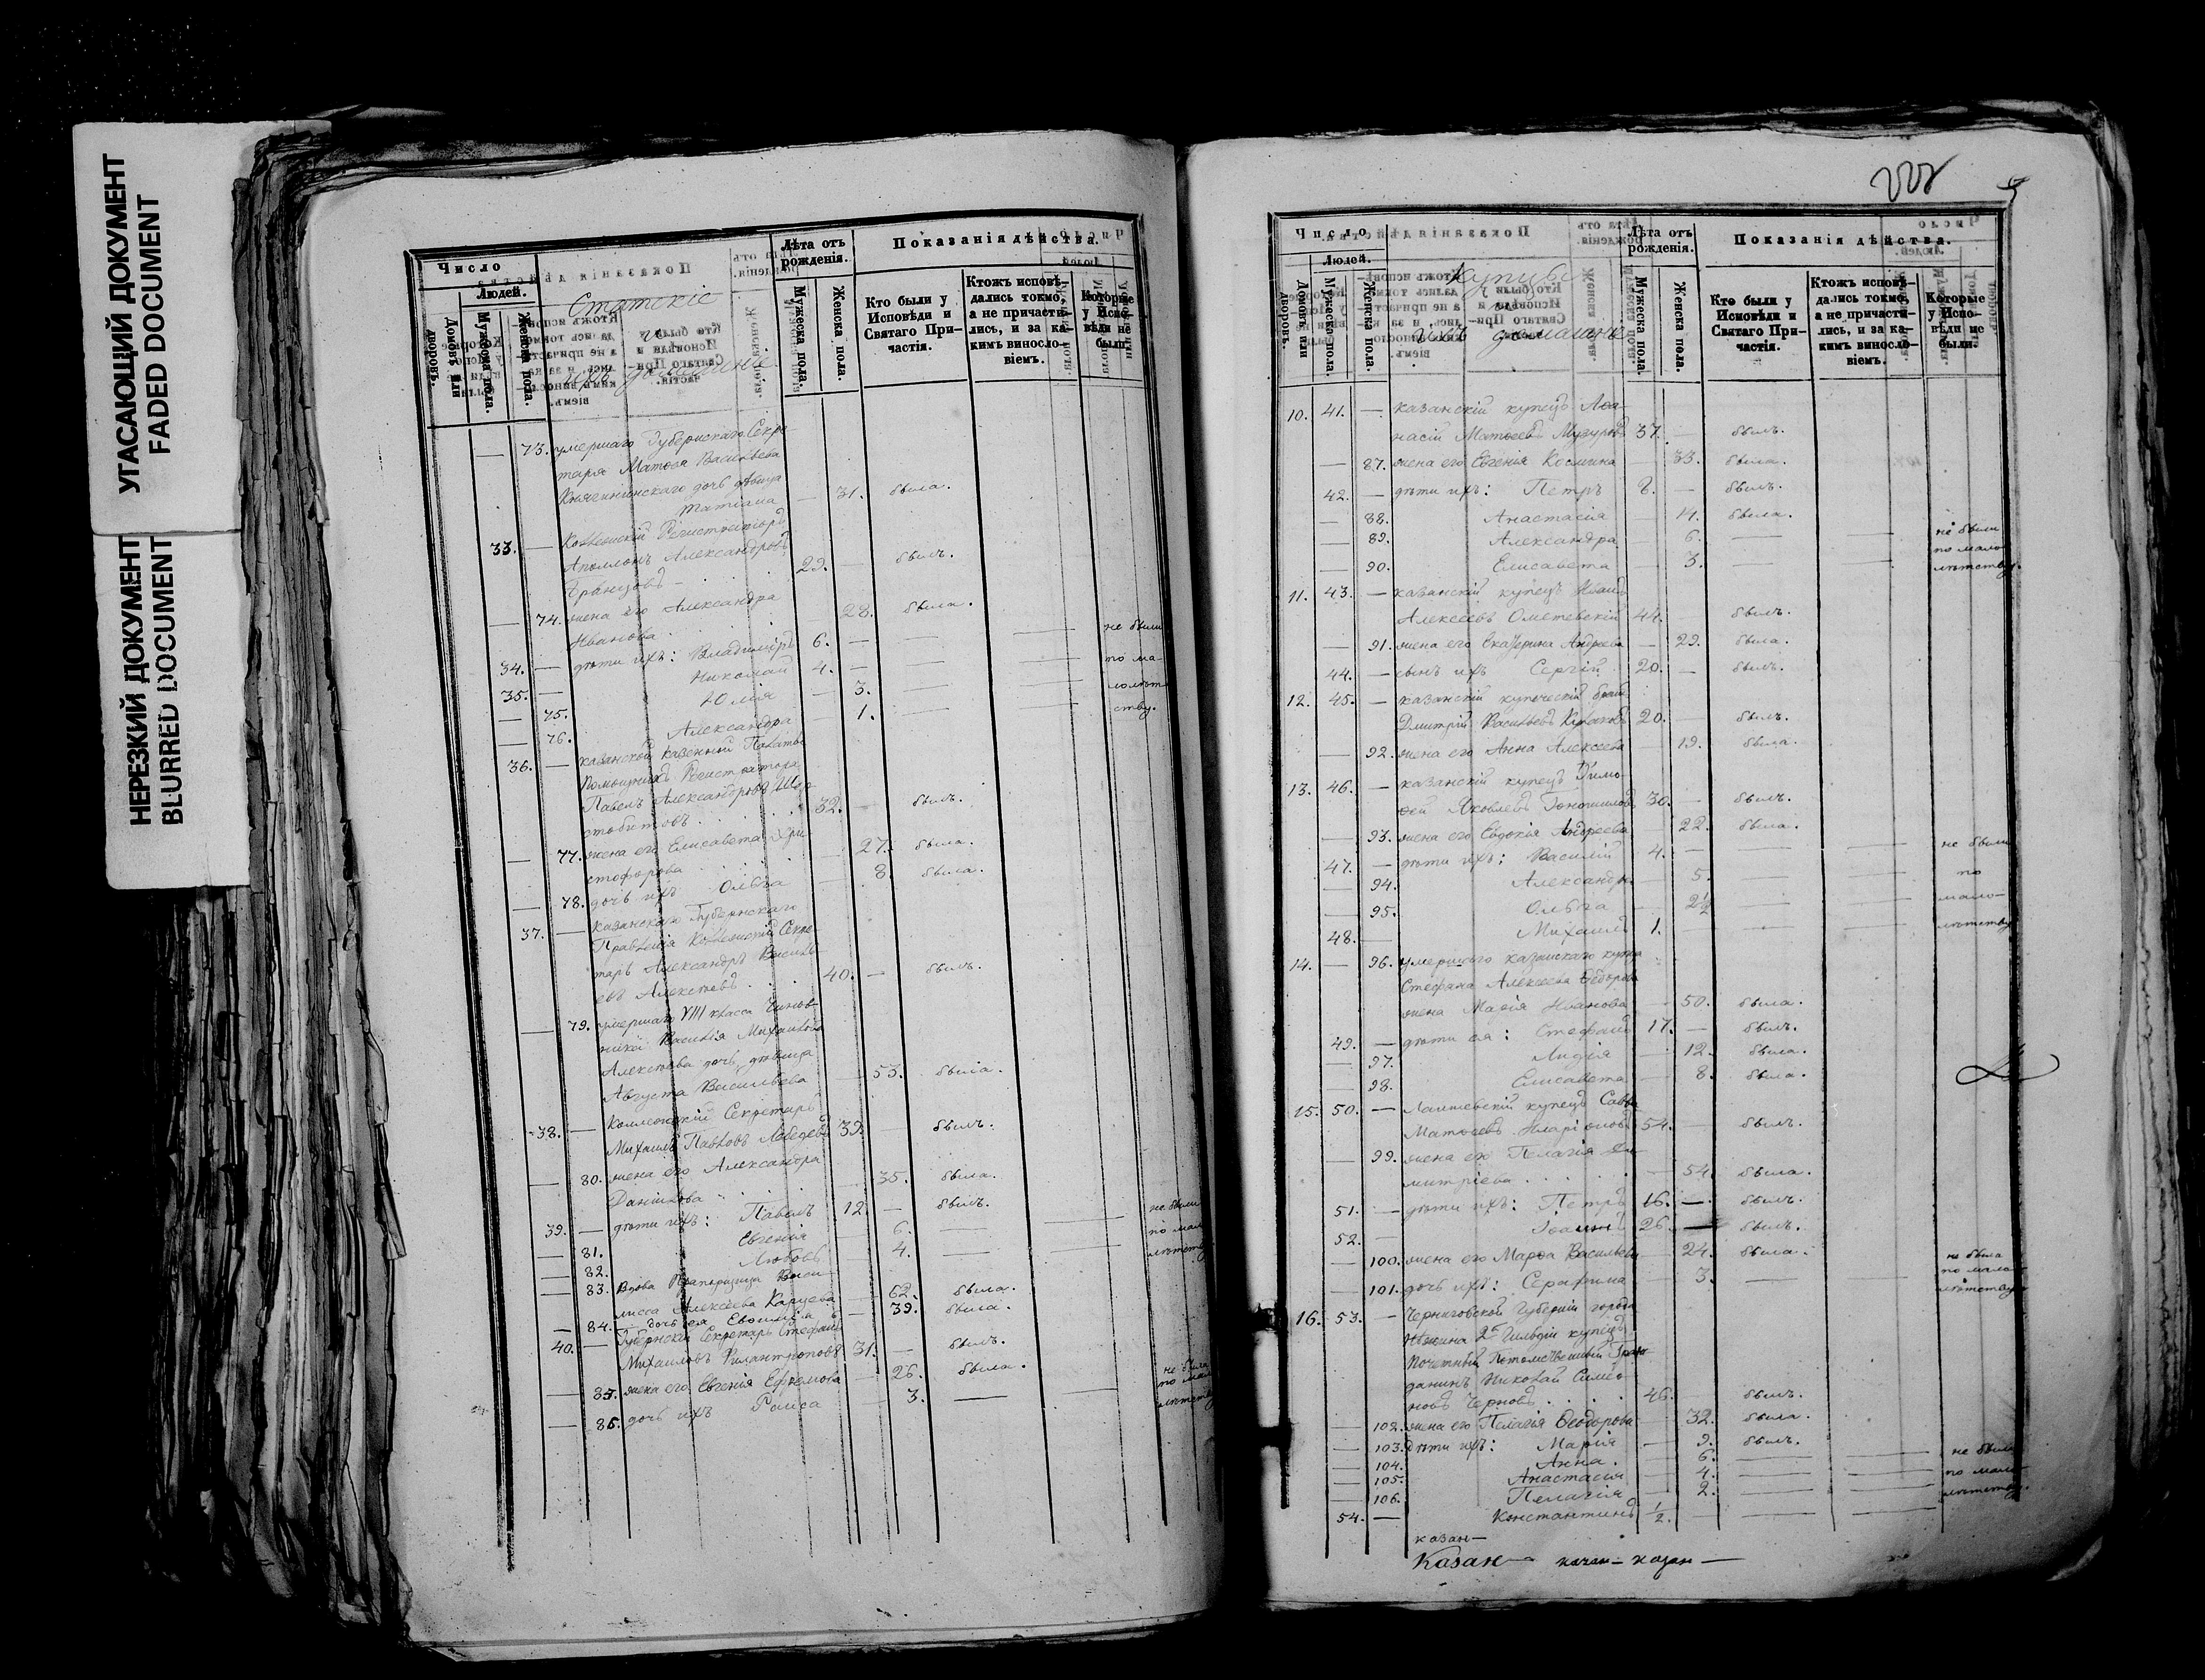 УГАСАЮЩИЙ ДОКУМЕНТ
FADED DOCUMENT
НЕРЕЗКИЙ ДОКУМЕНТ
BLURRED DOCUMENT
Число
Людей.
Домовъ или дворовъ.
Мужеска пола.
Женска пола.
Статскіе
и
ихъ домашніе
Лѣта отъ рожденія.
Мужеска пола.
Женска пола.
Показанія дѣйства.
Кто были у Исповѣди и Святаго При-
частія.
Ктожъ исповѣ-
дались токмо,
а не причасти-
лись, и за ка-
кимъ виносло-
віемъ.
Которые
у Испо-
вѣди не
были.
— 73. умершаго Губернскаго Секре
таря Матѳея Васильева
дочь дѣвица
Татіана — 31. была.
33. — Коллежскій Регистраторъ
Аполлонъ Александровъ
29. — былъ.
— 74. жена его Александра
Иванова 28. была.
34. — дѣти ихъ: Владиміръ 6. — не были
35. — Николай 4. — по ма-
— 75. Юлія — 3. — лолѣт
— 76. Александра — 1. — ству.
36. — казанской казенной Палаты
Помощникъ Регистратора
Павелъ Александровъ
32. — былъ.
— 77. жена его Елисавета Хри
стофорова 27. была.
— 78. дочь ихъ Ольга 8. была.
37. — казанскаго Губернскаго
Правленія Коллежскій Секре
тарь Александръ Василь
евъ Алексѣевъ 40. — былъ.
— 79. умершаго VIII класса Чинов-
ника Василія Михайлова
Алексѣева дочь дѣвица
Августа Васильева — 53. была.
38. — Коллежскій Секретарь
Михаилъ Павловъ Лебедевъ 39. былъ.
— 80. жена его Александра
Данилова 35. была.
39. — дѣти ихъ: Павелъ 12. — былъ.
— 81. Евгенія 6. — не были
— 82. Любовь 4. — по мало
лѣтству.
— 83. Вдова Прапорщица Васи-
лисса Алексѣева Каруева 62. была.
— 84. дочь ея 39. была.
40. — Губернскій Секретарь Стефанъ
Михаиловъ Филантроповъ 31. — былъ.
— 85. жена его Евгенія Ефремова — 26. была.
— 86. дочь ихъ Раиса — 3. — не была
по мало
лѣтству
Число
Людей.
Домовъ или дворовъ.
Мужеска пола.
Женска пола.
Купцы
и
ихъ домашніе
Лѣта отъ рожденія.
Мужеска пола.
Женска пола.
Показанія дѣйства.
Кто были у Исповѣди и Святаго При-
частія.
Ктожъ исповѣ-
дались токмо,
а не причасти-
лись, и за ка-
кимъ виносло-
віемъ.
Которые
у Испо-
вѣди не
были.
10. 41. — казанскій купецъ Аѳа-
насій Матѳеевъ 37. — былъ.
— 87. жена его Евгенія Космина — 33. была.
42. — дѣти ихъ: Петръ 8. — былъ.
— 88. Анастасія — 11. была.
— 89. Александра — 6. — не были
по мало
— 90. Елисавета — 3. — лѣтству.
11. 43. — казанскій купецъ Иванъ
Алексѣевъ Ометевскій 44. былъ.
— 91. жена его Екатерина Андреева — 29. была.
44. — сынъ ихъ Сергій 20. — былъ.
12. 45. — казанскій купеческій братъ
Дмитрій Васильевъ 20. — былъ.
— 92. жена его Анна Алексѣева — 19. была.
13. 46. — казанскій купецъ Тимо-
ѳей Яковлевъ 30. — былъ.
— 93. жена его Евдокія Андреева — 22. была.
47. — дѣти ихъ: Василій 4. — не были
— 94. Александра 5. — по
— 95. Ольга 2½ — мало-
48. — Михаилъ 1. — лѣтству
14. — 96. умершаго казанскаго купца
Стефана Алексѣева Ѳедорова
жена Марія Иванова — 50. была.
49. — дѣти ея: Стефанъ 17. — былъ.
— 97. Лидія — 12. была.
— 98. Елисавета — 8. была.
15. 50. — Лаишевскій купецъ Савва
Матѳеевъ Иларіоновъ 54. — былъ.
— 99. жена его Пелагія Ди-
митріева — 54. была.
51. — дѣти ихъ: Петръ 16. — былъ.
52. — Іоаннъ 26. — былъ.
— 100. жена его Марѳа Васильева — 24. была.
— 101. дочь ихъ: Серафима — 3. — не была
по мало
лѣтству
16. 53. — Черниговской Губерніи города
Нѣжина 2й Гильдіи купецъ
Почетный Потомственный Граж-
данинъ Николай Симео-
новъ Черновъ 46. — былъ.
— 102. жена его Пелагія Ѳеодорова — 32. была.
— 103. дѣти ихъ: Марія — 9. былъ.
— 104. Анна. 6. — не были
— 105. Анастасія 4. — по мало-
— 106. Пелагія — 2. — лѣтству.
54. — Константинъ ½. —
казан—
Казан— казан— казан—